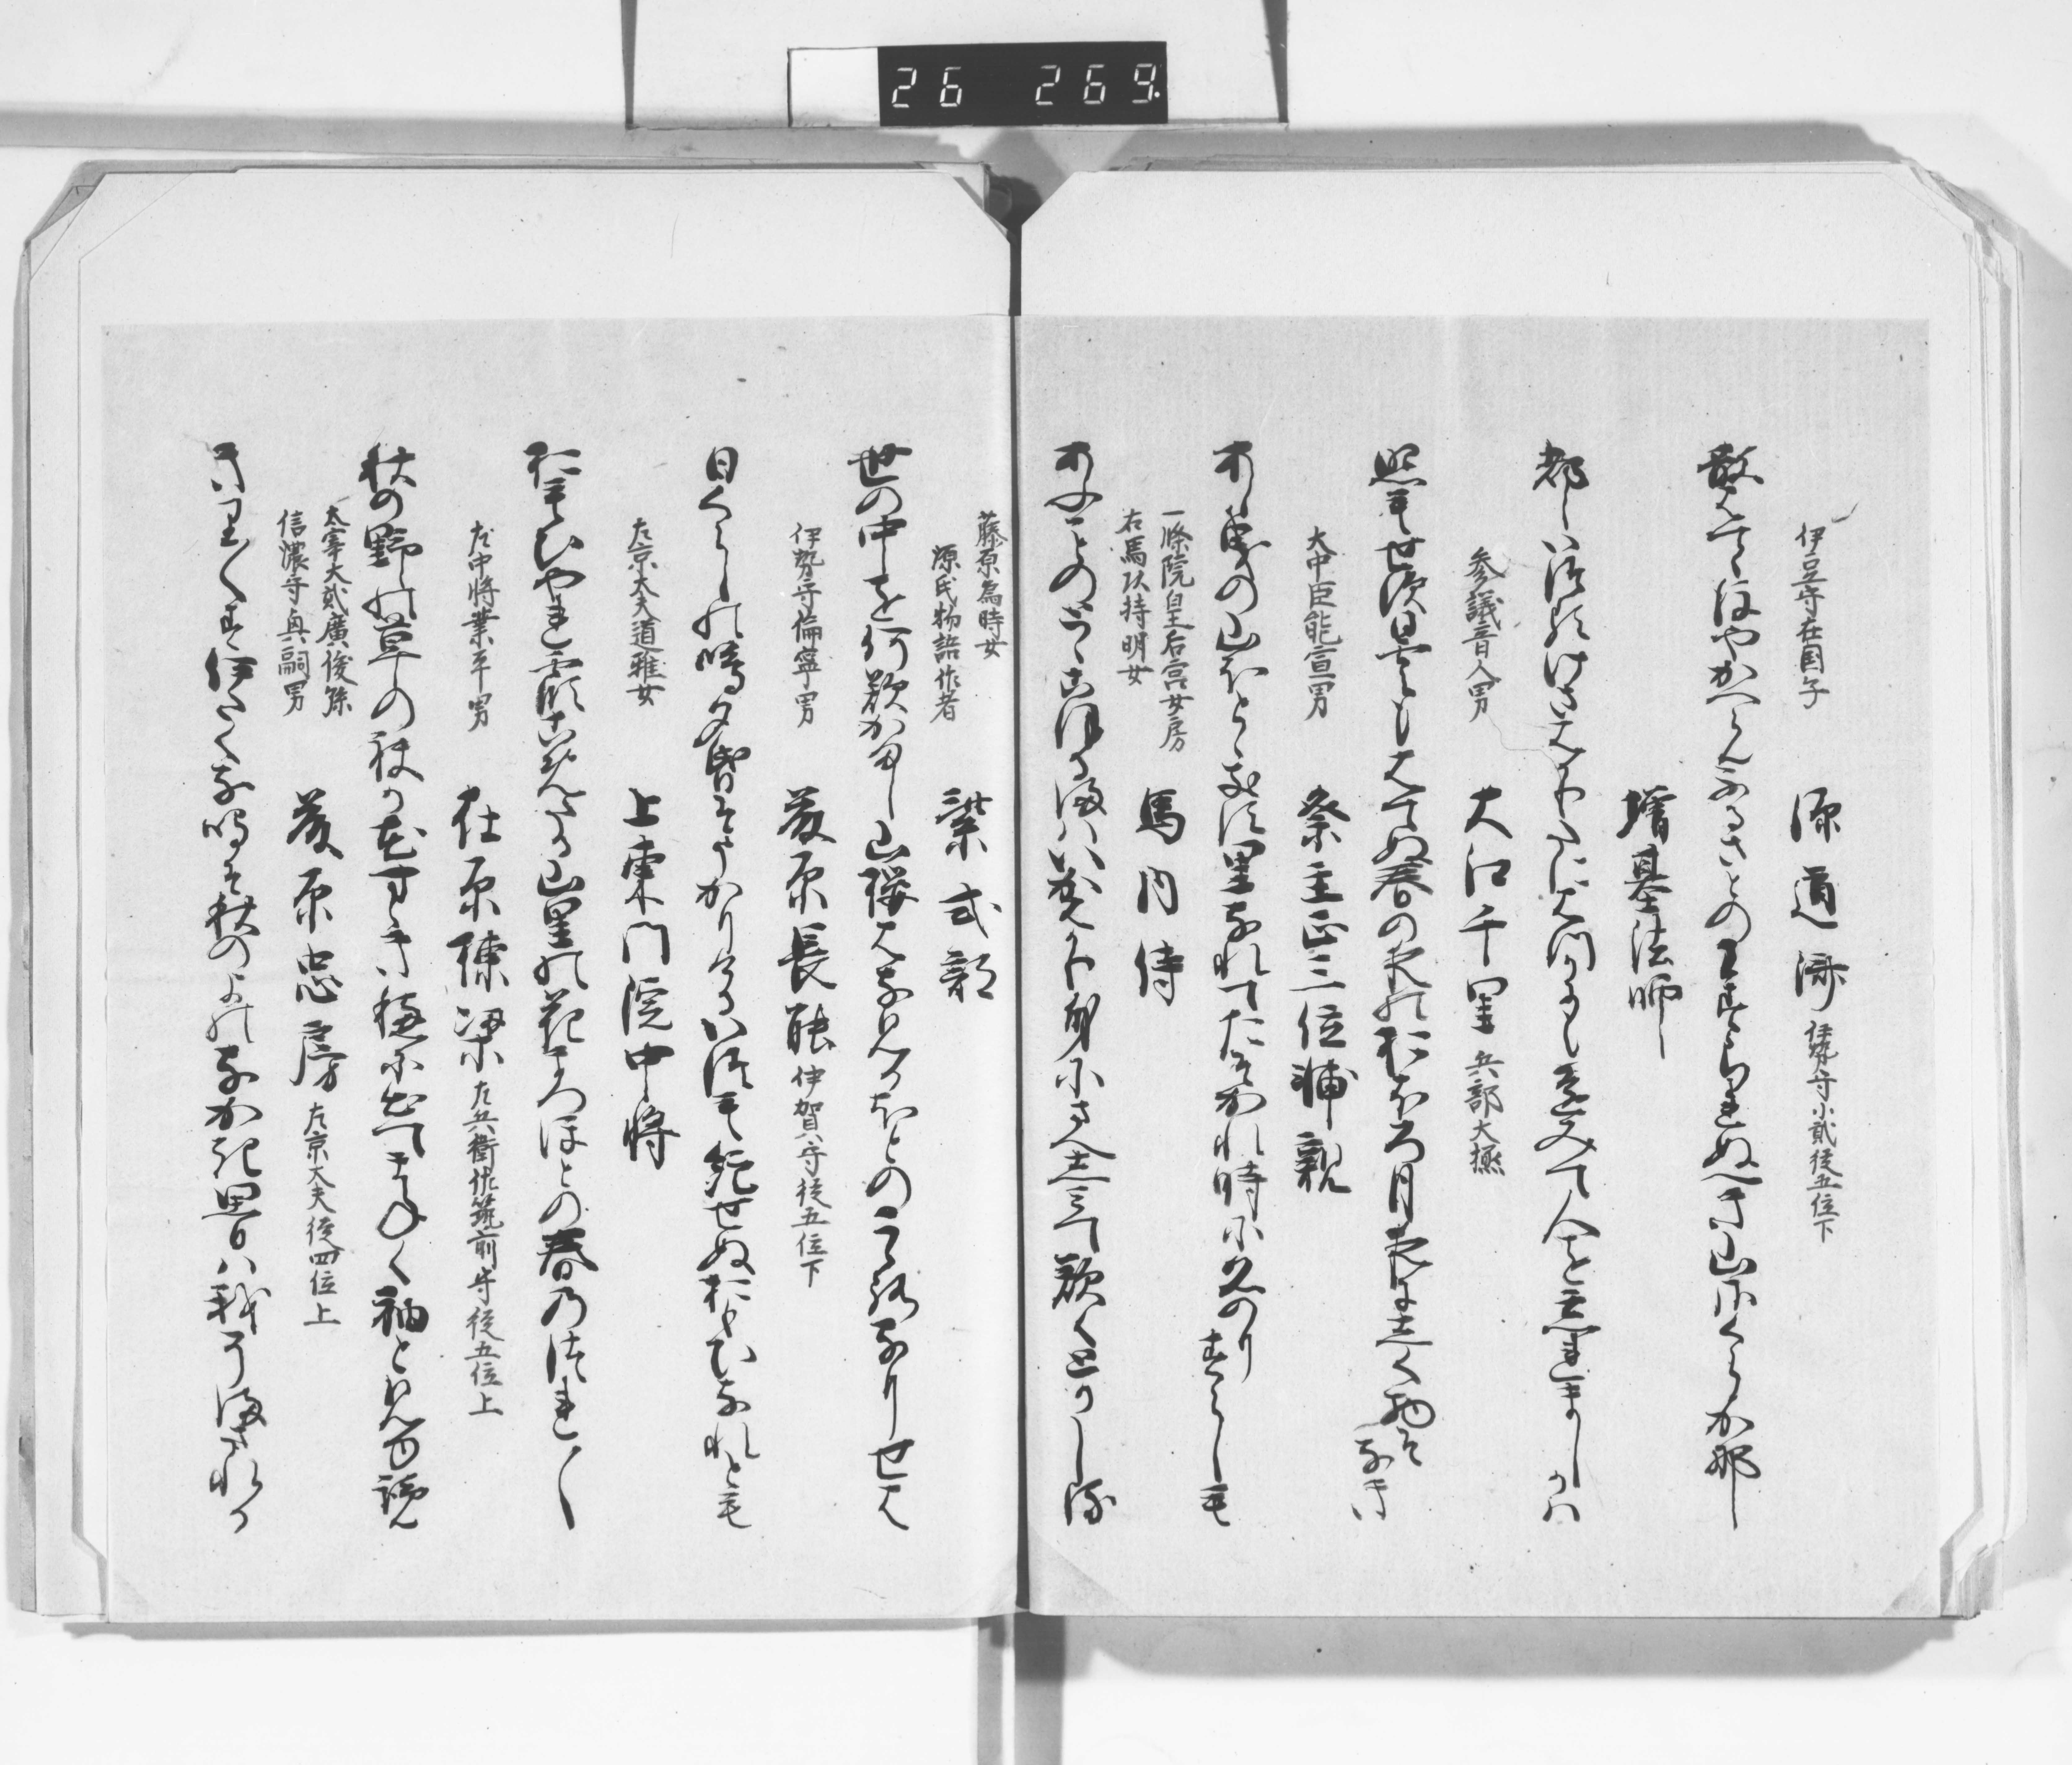 26 269.
伊豆守在国子
源道済 伊勢守小貳従五位下
散はてゝ後やかへらんふるさとのわすられぬへき山さくらか那
増基法師
都いつるけさはかりたにはつかにもあひみて人を別ましかは
参議音人男
大江千里 兵部大丞
照もせす曇もはてぬ春の夜のおほろ月夜にしく物そなき
大中臣能宣男
祭主正三位輔親
あし曳の山ほとゝきす里なれてたそかれ時に名のりすらしも
一條院皇后宮女房
右馬頭時明女
馬内侍
あふことのとゝこほるまはいかはかり身にさへしみて歎くとかしる
藤原為時女
源氏物語作者
紫式部
世の中を何歎かまし山桜花見るほとの心なりせは
伊勢守倫寧男
藤原長能 伊賀守従五位下
日くらしの鳴夕暮そうかりけるいつも絶せぬおもひなれとも
左京大夫道雅女
上東門院中将
おもひやれ霞こめたる山里の花まつほとの春のつれ〱
左中将業平男
在原棟梁 左兵衛佐筑前守従五位上
秋の野の草の袂か花すゝき穂に出てまねく袖と見ゆ覧
太宰大貳廣俊孫
信濃守興嗣男
藤原忠房 左京大夫従四位上
きり〱す伊たくな鳴そ秋のよのなかき思ひは我そまされる